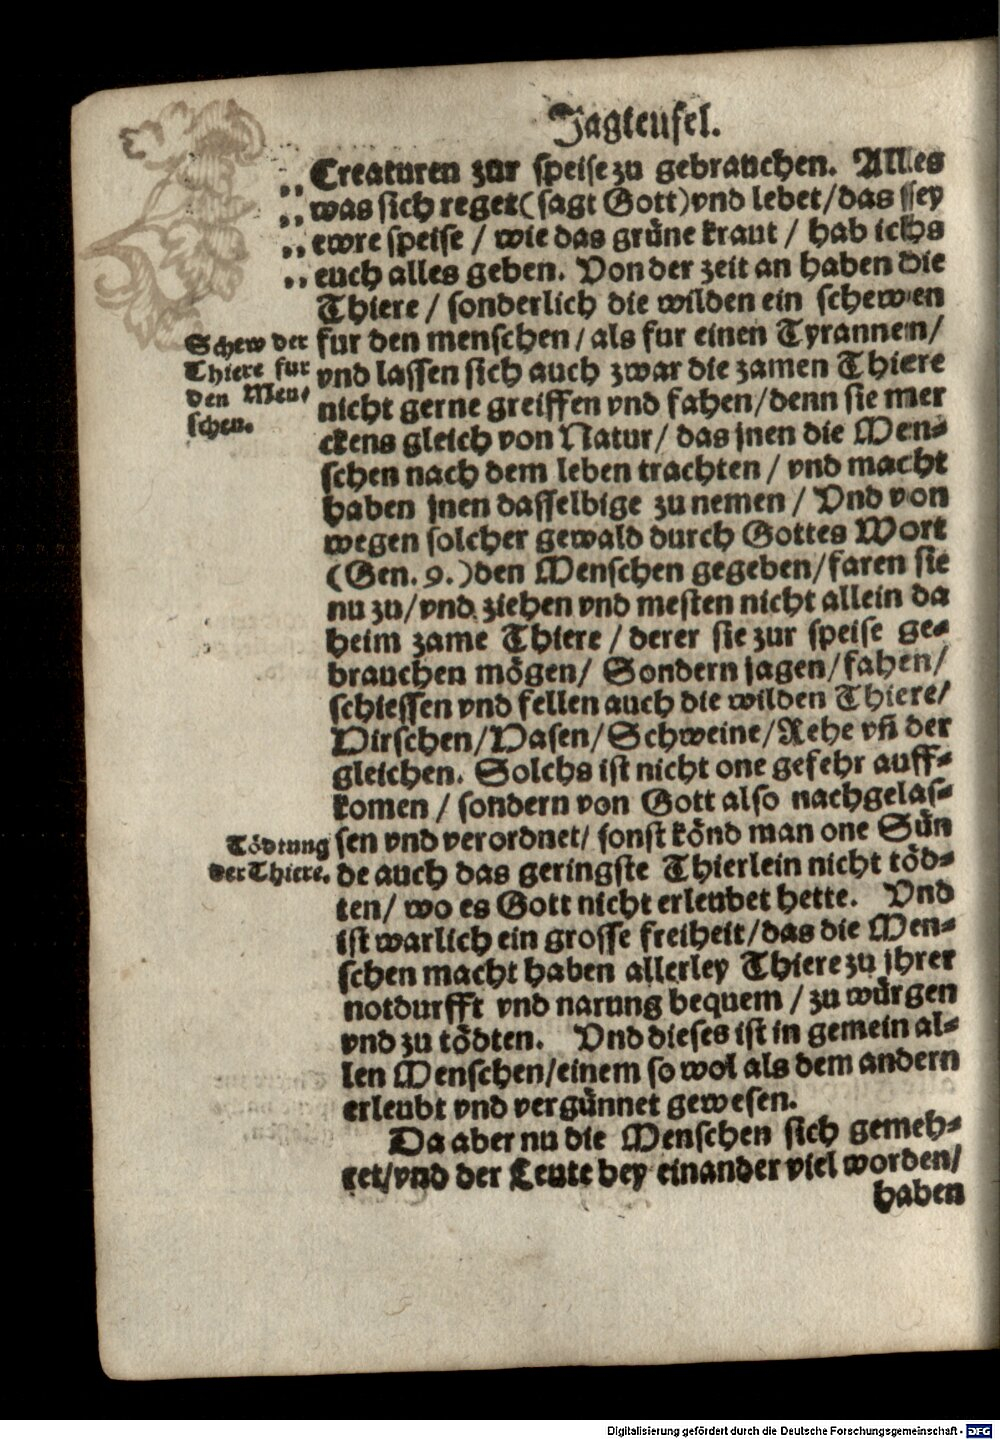 Jagteufel.
,, Creaturen zur speise zu gebrauchen. Alles
,, was sich reget (sagt Gott) vnd lebet / das sey
,, ewre speise / wie das grüne kraut / hab ichs
,, euch alles geben. Von der zeit an haben die
Thiere / sonderlich die wilden ein schewen
Schew der
Thiere fur
den Men/
schen.
fur den menschen / als fur einen Tyrannen /
vnd lassen sich auch zwar die zamen Thiere
nicht gerne greiffen vnd fahen / denn sie mer
ckens gleich von Natur / das jnen die Men-
schen nach dem leben trachten / vnd macht
haben jnen dasselbige zu nemen / Vnd von
wegen solcher gewald durch Gottes Wort
(Gen. 9.) den Menschen gegeben / faren sie
nu zu / vnd ziehen vnd mesten nicht allein da
heim zame Thiere / derer sie zur speise ge-
brauchen mögen / Sondern jagen / fahen /
schiessen vnd fellen auch die wilden Thiere /
Hirschen / Hasen / Schweine / Rehe vñ der
gleichen. Solchs ist nicht one gefehr auff-
komen / sondern von Gott also nachgelas-
Tödtung
der Thiere.
sen vnd verordnet / sonst könd man one Sün
de auch das geringste Thierlein nicht töd-
ten / wo es Gott nicht erleubet hette. Vnd
ist warlich ein grosse freiheit / das die Men-
schen macht haben allerley Thiere zu jhrer
notdurfft vnd narung bequem / zu würgen
vnd zu tödten. Vnd dieses ist in gemein al-
len Menschen / einem so wol als dem andern
erleubt vnd vergünnet gewesen.
Da aber nu die Menschen sich gemeh-
ret / vnd der Leute bey einander viel worden /
haben
Digitalisierung gefördert durch die Deutsche Forschungsgemeinschaft - DFG